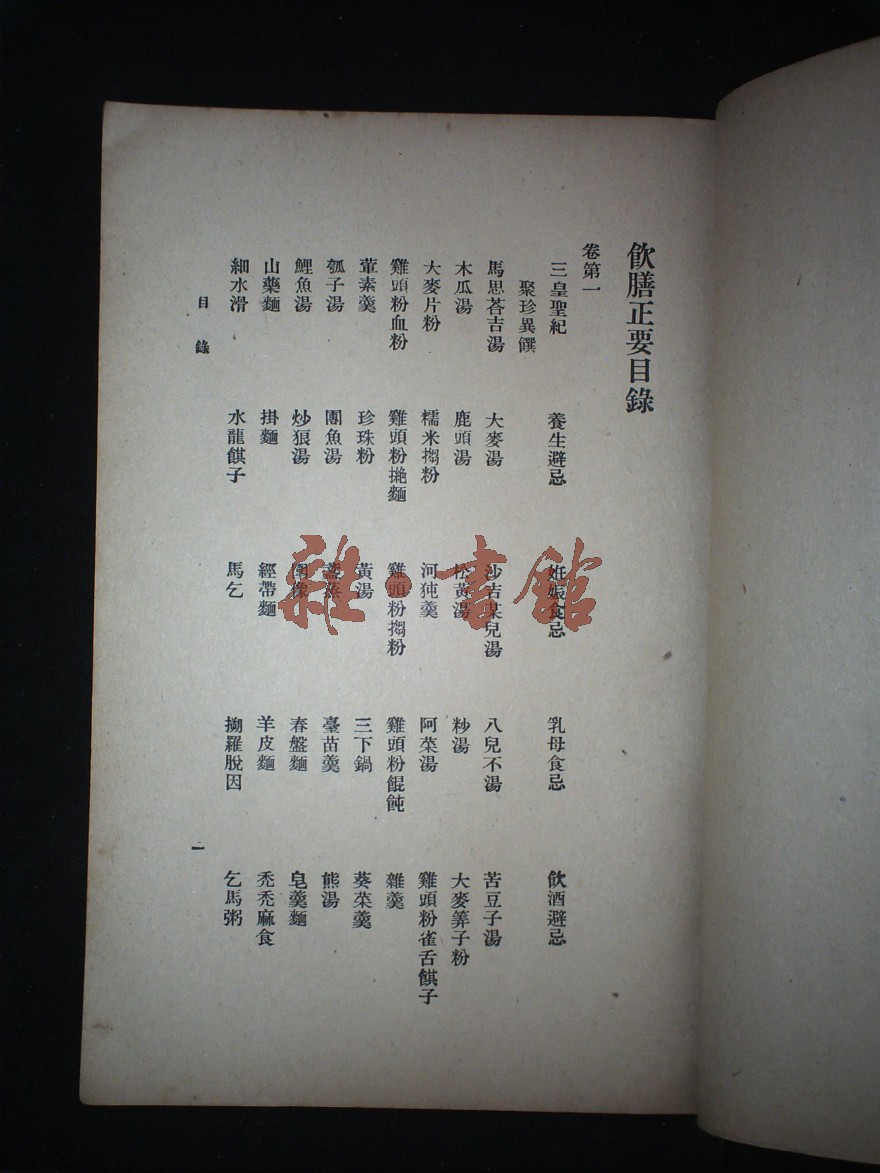 飲膳正要目錄
卷第一
三皇聖紀 養生避忌 妊娠食忌 乳母食忌 飲酒避忌
聚珍異饌
馬思荅吉湯 大麥湯 沙吉某兒湯 八兒不湯 苦豆子湯
木瓜湯 鹿頭湯 松黃湯 粆湯 大麥筭子粉
大麥片粉 糯米搊粉 河㹠羹 阿菜湯 雞頭粉雀舌餶子
雞頭粉血粉 雞頭粉撧麵 雞頭粉搊粉 雞頭粉餛飩 雜羹
葷素羹 珍珠粉 黃湯 三下鍋 葵菜羹
瓠子湯 團魚湯 盞蒸 臺苗羹 熊湯
鯉魚湯 炒狼湯 圍像 春盤麵 皂羹麵
山藥麵 掛麵 經帶麵 羊皮麵 禿禿麻食
細水滑 水龍餶子 馬乞 搠羅脫因 乞馬粥
目錄 一
雜·書館